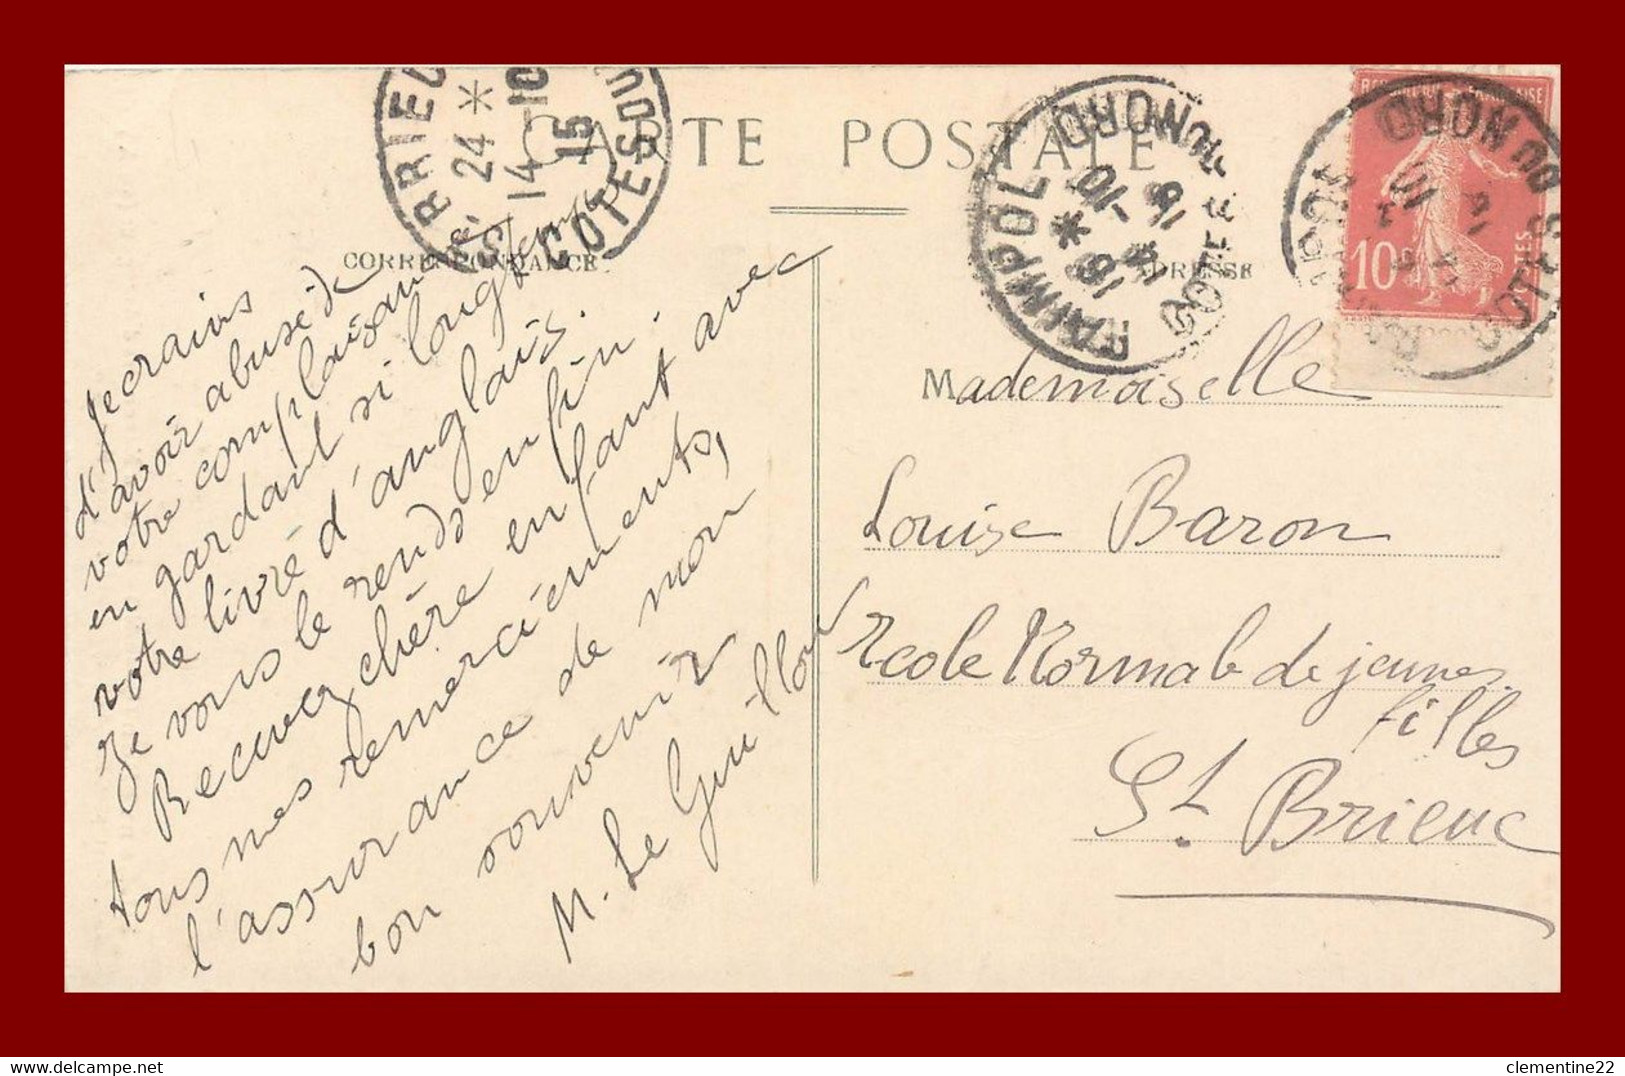 CARTE POSTALE
CORRESPONDANCE
ADRESSE
Je crains
d'avoir abusé de
votre complaisance
en gardant si longtemps
votre livre d'anglais.
Je vous le rends enfin.
Recevez chère enfant avec
tous mes remerciements,
l'assurance de mon
bon souvenir
M. Le Guillou
Mademoiselle
Louise Baron
Ecole Normale de jeunes
filles
St. Brieuc
BRIEUC
24 *
14 -10
15
COTES DU
PAIMPOL
18 *
14 -10
15
COTES DU NORD
COTES DU NORD
10
clementine22